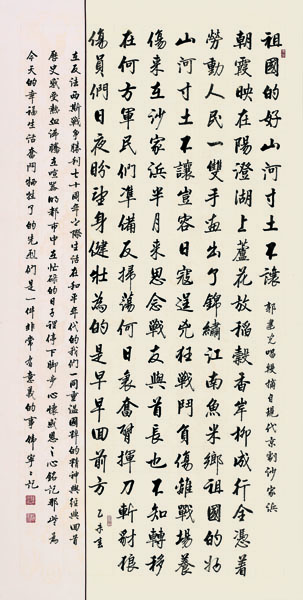 祖國的好山河寸土不讓 郭建光唱段摘自現代京劇沙家浜
朝霞映在陽澄湖上蘆花放稻穀香岸柳成行全憑着
勞動人民一雙手畫出了錦繡江南魚米鄉祖國的好
山河寸土不讓豈容日寇逞兇狂戰鬥負傷離戰場養
傷來在沙家浜半月來思念戰友與首長也不知轉移
在何方軍民們準備反掃蕩何日裏奮臂揮刀斬豺狼
傷員們日夜盼望身健壯為的是早早回前方 乙未夏
在反法西斯戰爭勝利七十周年之際生活在和平年代的我們一同重溫國粹的精神與經典回首
歷史感受熱血沸騰在喧囂的都市中在忙碌的日子裡停下腳步心懷感恩之心銘記那些為
今天的幸福生活奮鬥犧牲了的先烈們是一件非常有意義的事